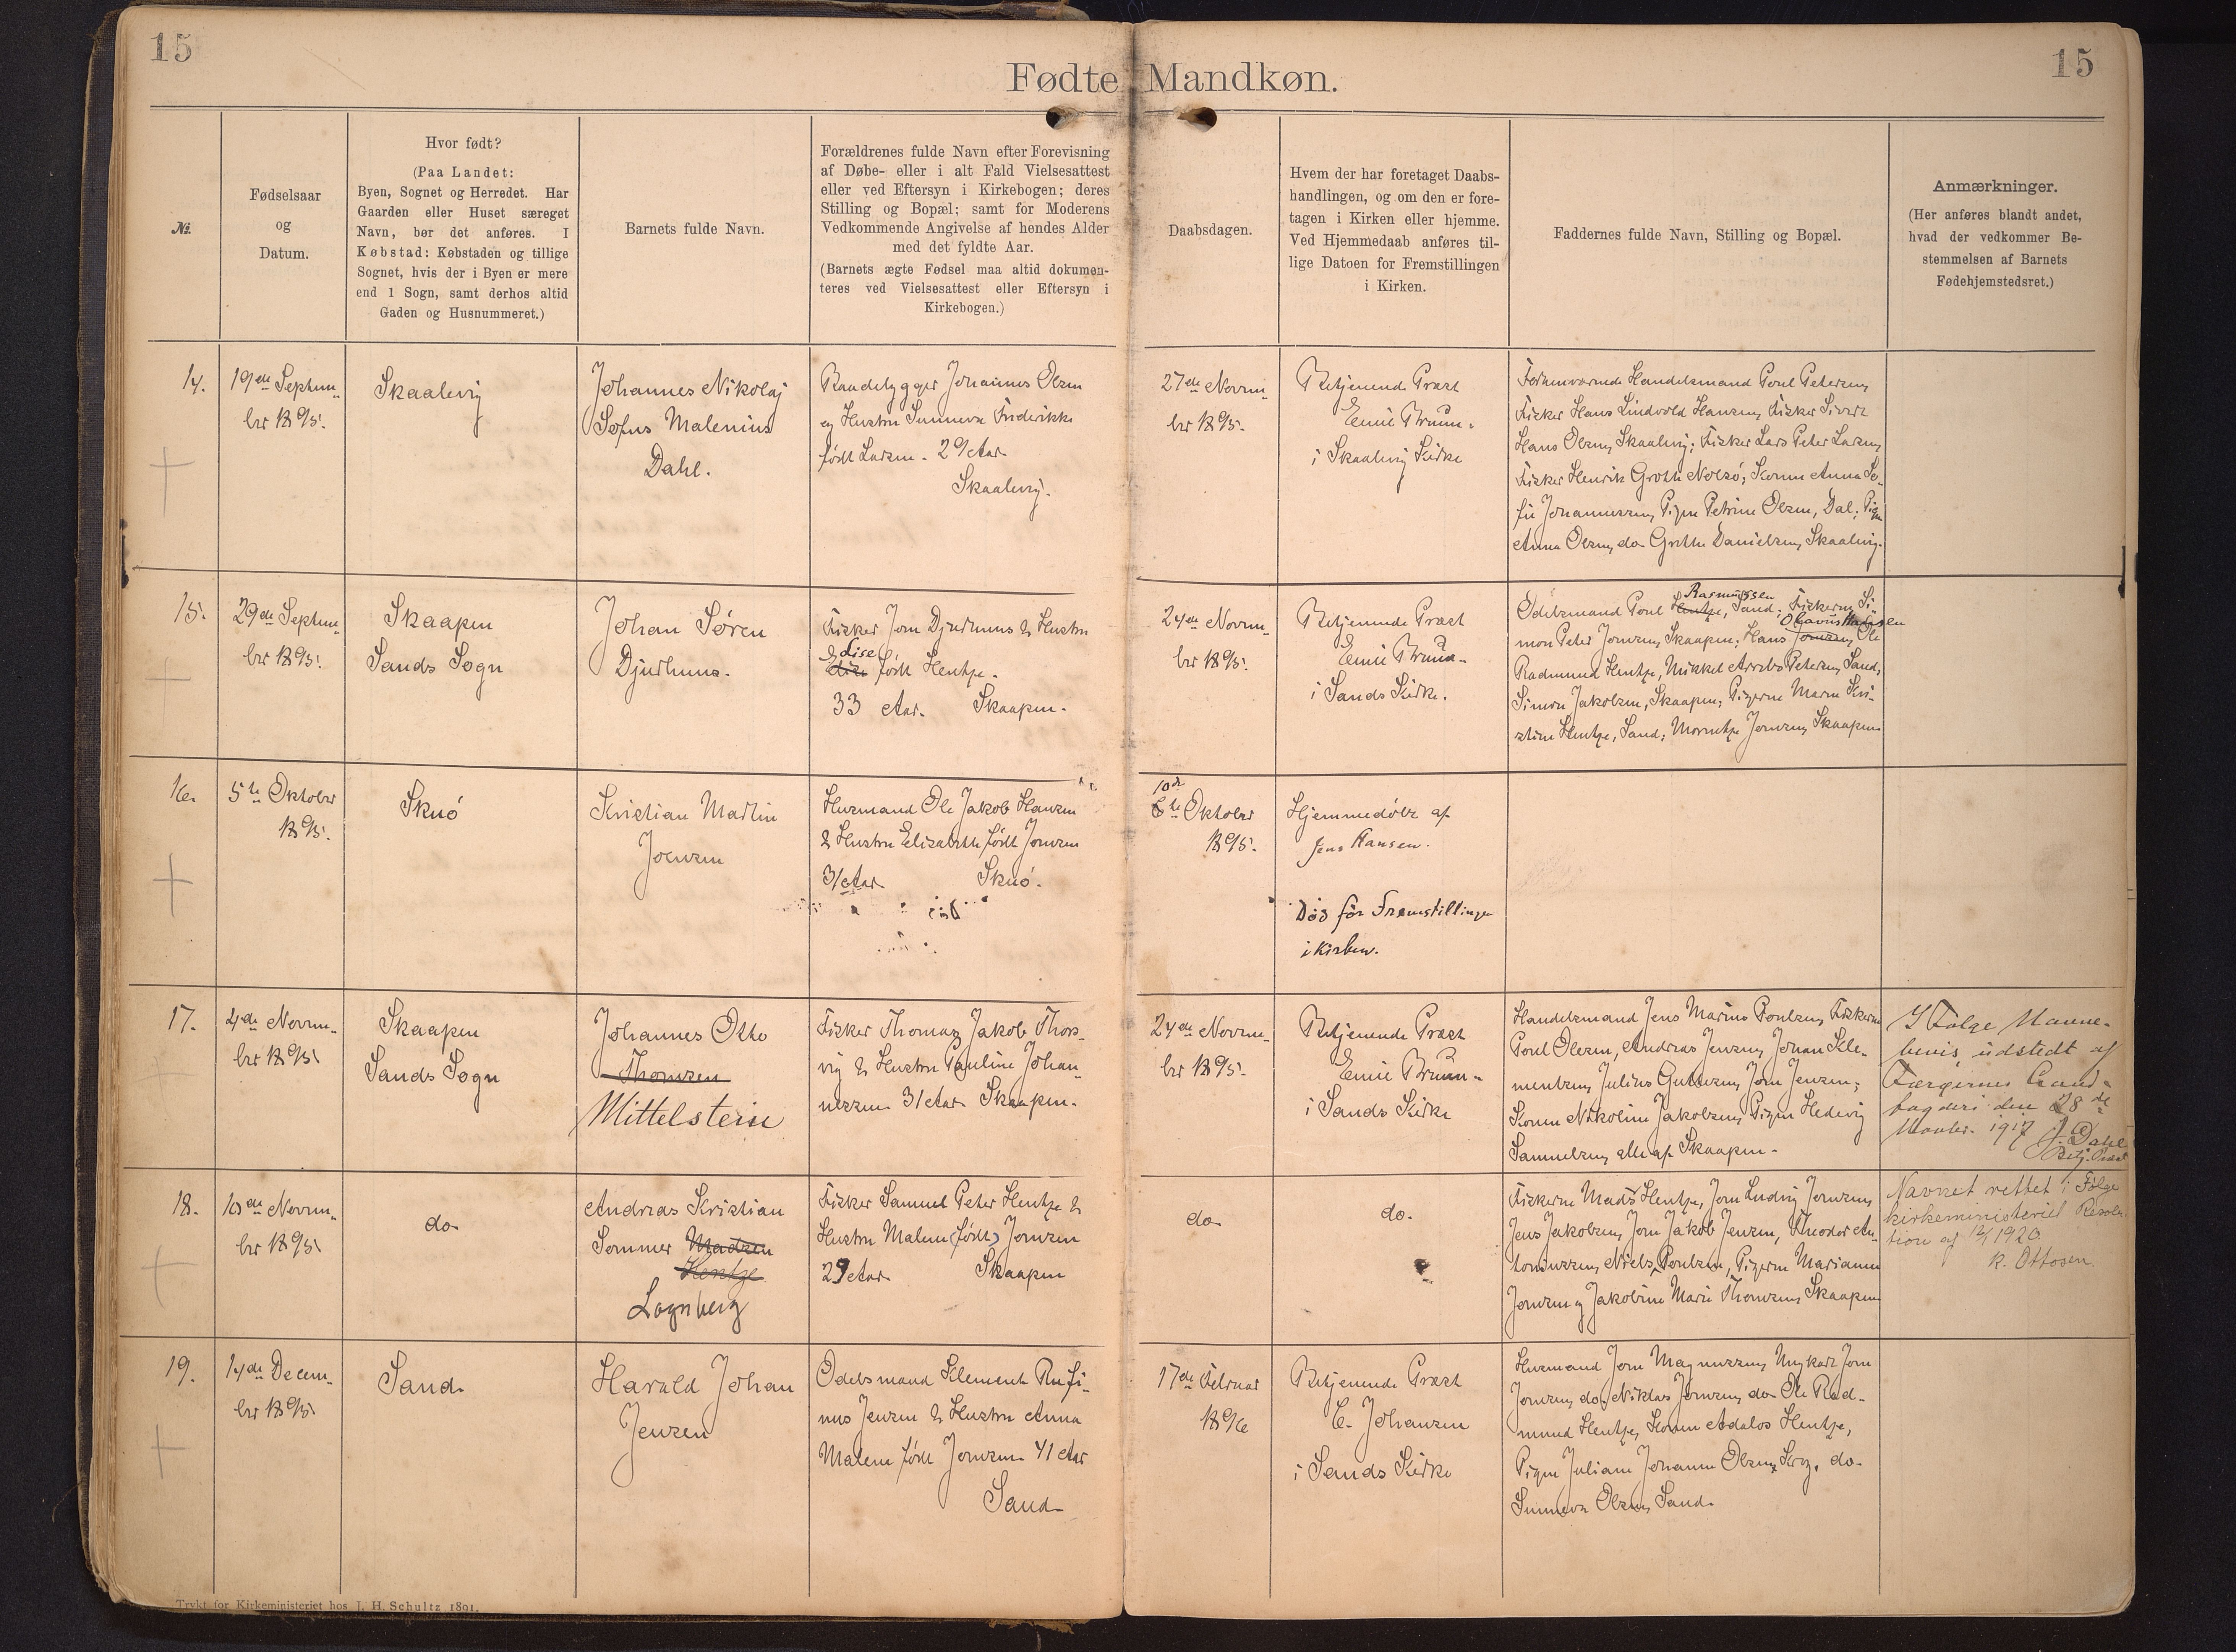 15
15
Fødte Mandkøn.
№.
Fødselsaar
og
Datum.
Hvor født?
(Paa Landet:
Byen, Sognet og Herredet. Har
Gaarden eller Huset særeget
Navn, bør det anføres. I
Købstad: Købstaden og tillige
Sognet, hvis der i Byen er mere
end 1 Sogn, samt derhos altid
Gaden og Husnummeret.)
Barnets fulde Navn.
Forældrenes fulde Navn efter Forevisning
af Døbe- eller i alt Fald Vielsesattest
eller ved Eftersyn i Kirkebogen; deres
Stilling og Bopæl; samt for Moderens
Vedkommende Angivelse af hendes Alder
med det fyldte Aar.
(Barnets ægte Fødsel maa altid dokumen-
teres ved Vielsesattest eller Eftersyn i
Kirkebogen.)
Daabsdagen.
Hvem der har foretaget Daabs-
handlingen, og om den er fore-
tagen i Kirken eller hjemme.
Ved Hjemmedaab anføres til-
lige Datoen for Fremstillingen
i Kirken.
Faddernes fulde Navn, Stilling og Bopæl.
Anmærkninger.
(Her anføres blandt andet,
hvad der vedkommer Be-
stemmelsen af Barnets
Fødehjemstedsret.)
14.
19de Septem-
ber 1895.
Skaalevig
Johannes Nikolaj
Sofus Malenius
Dahl.
Baadebygger Johannes Olsen
og Hustru Sunneva Frederikke
født Larsen. 29 Aar
Skaalevig.
27de Novem-
ber 1895.
Betjenende Præst
Emil Bruun.
i Skaalevig Kirke
Forhenværende Handelsmand Poul Petersen,
Fisker Hans Lindvold Hansen, Fisker Sivert
Hans Olsen, Skaalevig; Fisker Lars Peter Larsen,
Fisker Henrik Groth Nolsø; Konen Anna So-
fie Johannessen, Pigen Petrine Olsen, Dal; Pigen
Anna Olsen, do Grethe Danielsen, Skaalevig.
15.
29de Septem-
ber 1895.
Skaapen
Sands Sogn
Johan Søren
Djurhuus.
Fisker Jom Djurhuus & Hustru
Lise
født Hentze.
33 Aar. Skaapen.
24de Novem-
ber 1895.
Betjenende Præst
Emil Bruun.
i Sands Kirke.
Rasmussen
Odelsmand Poul Hentze, Sand; Fiskerne Si-
Olavius Hansen
mon Peter Joensen, Skaapen; Hans Joensen, Ole
Radmund Hentze, Mikkel Arrebo Petersen, Sand;
Simon Jakobsen, Skaapen; Pigerne Maren Kri-
stine Hentze, Sand; Morentze Joensen, Skaapen
16.
5te Oktober
1895.
Skuø
Kristian Martin
Joensen
Husmand Ole Jakob Hansen
& Hustru Elisabeth født Joensen
31 Aar Skuø.
10de
6te Oktober
1895.
Hjemmedøbt af
Jens Hansen.
Død før Fremstillingen
i Kirken.
17.
4de Novem-
ber 1895
Skaapen
Sands Sogn
Johannes Otto
Thomsen
Mittelstein
Fisker Thomas Jakob Thors-
vig & Hustru Pauline Johan-
nessen 31 Aar Skaapen.
24de Novem-
ber 1895.
Betjenende Præst
Emil Bruun.
i Sands Kirke
Handelsmand Jens Marius Poulsen, Fiskerne
Poul Olesen, Andreas Jensen, Johan Kle-
mentsen, Julius Guttesen, Joen Jensen;
Konen Nikoline Jakobsen, Pigen Hedevig
Samuelsen, alle af Skaapen.
I Følge Navne-
bevis udstedt af
Færøernes Land-
fogderi den 28de
Novbr. 1917 J. Dahl
Betj. Præst
18.
10de Novem-
ber 1895
do
Andreas Kristian
Sommer Madsen
Hentze
Lognberg
Fisker Samuel Peter Hentze &
Hustru Malene (født) Joensen
29 Aar Skaapen
do
do.
Fiskerne Mads Hentze, Joen Ludvig Joensen,
Jens Jakobsen, Joen Jakob Jensen, Theodor An-
toniussen, Niels Poulsen, Pigerne Marianne
Joensen og Jakobine Marie Thomsen, Skaapen
Navnet rettet i Følge
kirkeministeriel Resolu-
tion af 12/1 1920
K. Ottosen.
19.
14de Decem-
ber 1895
Sand.
Harald Johan
Jensen
Odelsmand Klement Rufi-
nus Jensen & Hustru Anna
Malene født Joensen 41 Aar
Sand.
17de Februar
1896
Betjenende Præst
E. Johansen
i Sands Kirke
Husmand Joen Magnussen, Ungkarl Joen
Joensen, do Niklas Joensen, do Ole Rad-
mund Hentze, Konen Adalos Hentze,
Pigen Juliane Johanne Olsen, do
Sunneva Olsen, Sand.
Trykt for Kirkeministeriet hos J. H. Schultz 1891.